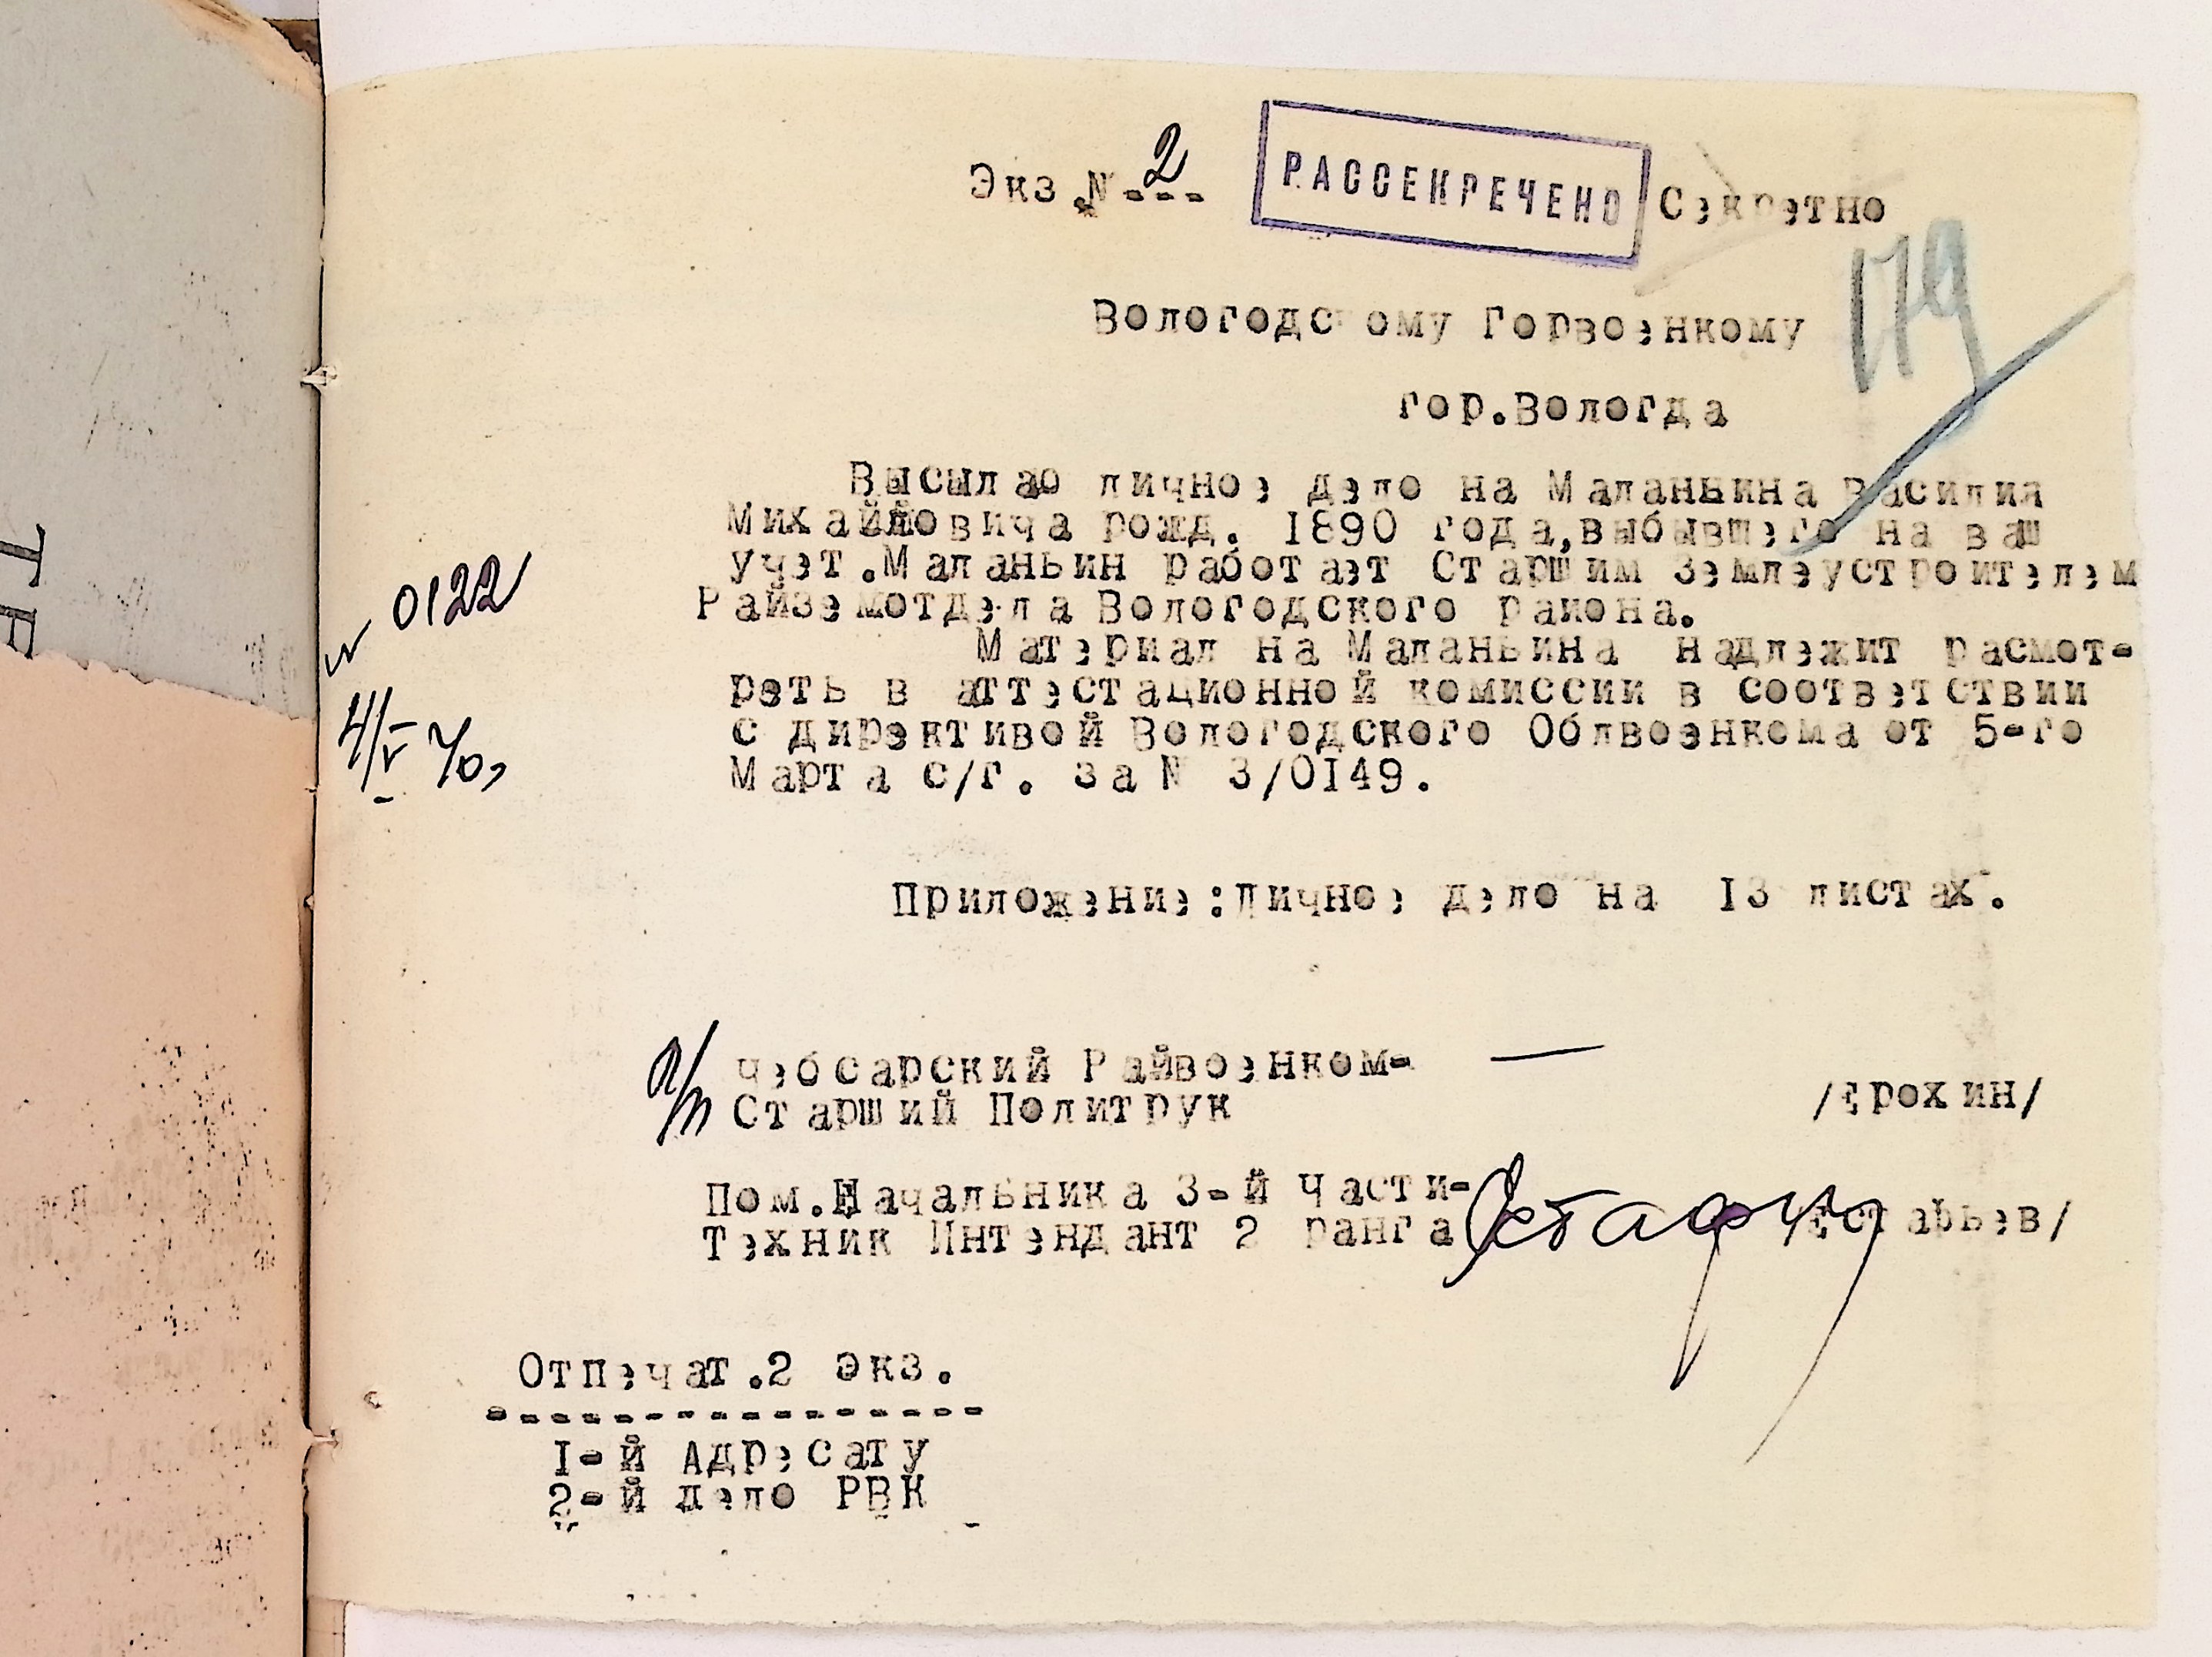 Экз.№ 2 РАССЕКРЕЧЕНО Секретно
179
Вологодскому Горвоенкому
гор.Вологда
Высылаю личное дело на Маланьина Василия
Михайловича рожд. 1890 года,выбывшего на ваш
учет.Маланьин работает Старшим Землеустроителем
Райземотдела Вологодского района.
Материал на Маланьина надлежит расмот-
реть в аттестационной комиссии в соответствии
с директивой Вологодского Облвоенкома от 5-го
Марта с/г. за № 3/0149.
№ 0122
4/V 40,
Приложение:Личное дело на 13 листах.
п/п Чебсарский Райвоенком-
Старший Политрук /Ерохин/
Пом.Начальника 3-й Части-
Техник Интендант 2 ранга /Естафьев/
Отпечат.2 экз.
1-й Адресату
2-й дело РВК